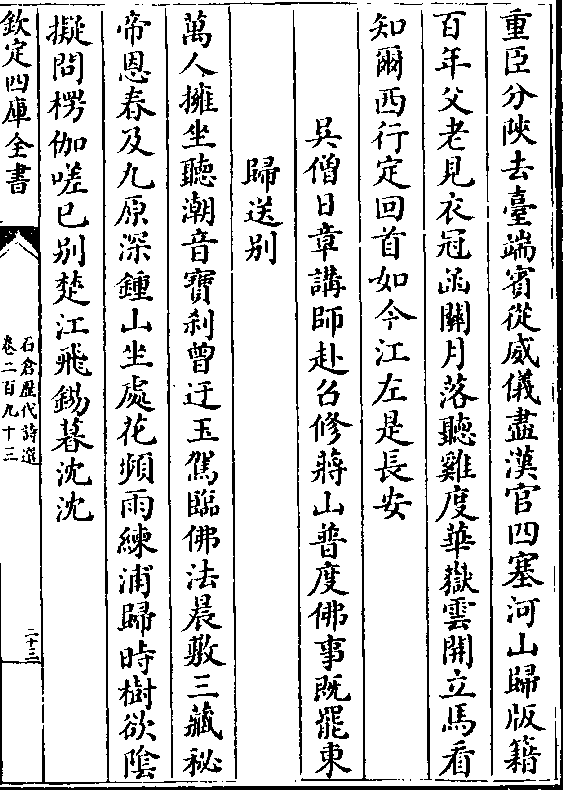 重臣分陜去臺端賓從威儀盡漢官四塞河山歸版籍
百年父老見衣冠函關月落聽雞度華嶽雲開立馬看
知爾西行定回首如今江左是長安
吳僧日章講師赴召修蔣山普度佛事既罷東
歸送别
萬人擁坐聽潮音寶刹曾迂玉駕臨佛法晨敷三藏秘
帝恩春及九原深鍾山坐處花頻雨練浦歸時樹欲陰
擬問楞伽嗟已别楚江飛錫暮沈沈
欽定四庫全書
石倉歷代詩選
卷二百九十三
二十三